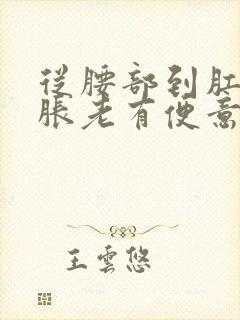 從腰部到肛
脹老有便意
王雲悠